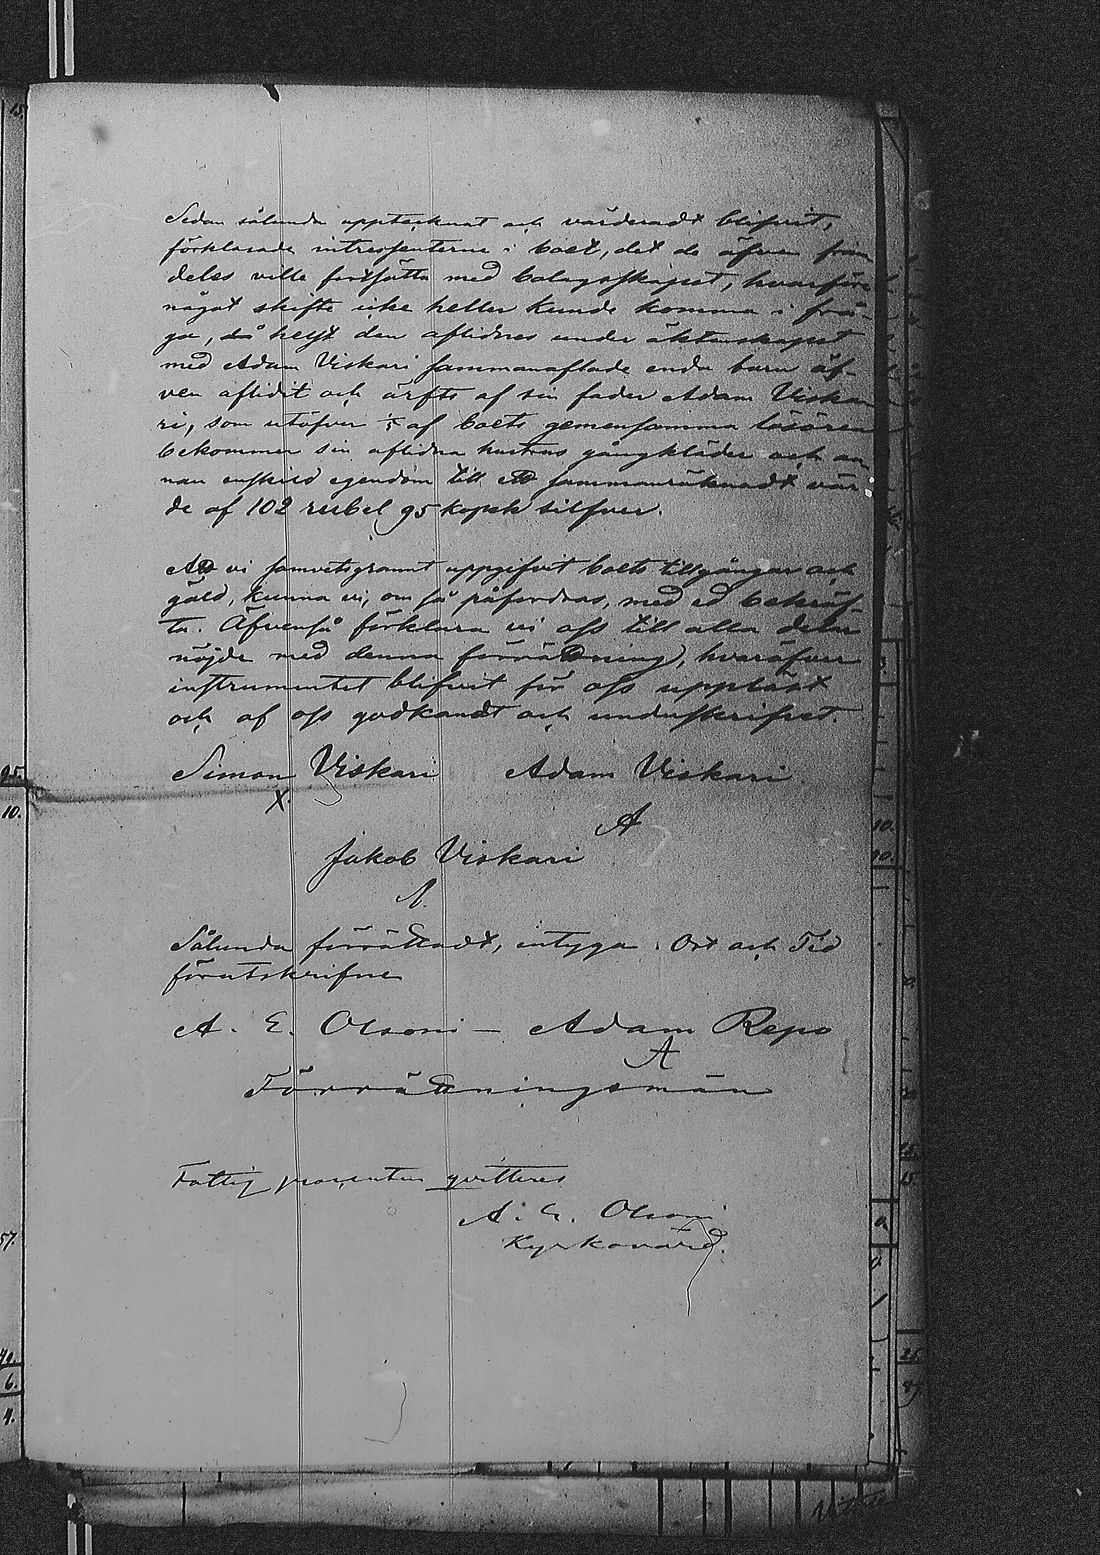 Sedan sålunda upptecknat och värderadt blifvit,
förklarade intressenterne i boet, det de äfven fram
deles ville fortsätta med bolagsskapet, hvarföre
något skifte icke heller kunde komma i frå-
ga, då helst den aflidnes under äktenskapet
med Adam Viskari sammanaflade enda barn äf-
ven aflidit och ärfts af sin fader Adam Viska
ri, som utöfver af boets gemensamma lösören
bekommer sin aflidna hustrus gångkläder och an
nan enskild egendom till ett sammanräknadt vär
de af 102 rubel 95 kopek silfver.
Att vi samvetsgrannt uppgifvit boets tillgångar och
gäld, kunna vi, om så påfordras, med ed bekräf-
ta. Äfvenså förklara vi oss till alla delar
nöjde med denna förrättning, hvaröfver
instrumentet blifvit för oss uppläst
och af oss godkändt och underskrifvet.
Simon Viskari Adam Viskari
X A
Jakob Viskari
Sålunda förrättadt, intyga. Ort och Tid
förutskrifne
A. E. Olsoni – Adam Repo
A
Förrättningsmän
Fattig procenten qvitteras
A. E. Olsoni
Kyrkovärd.
15.
95.
10.
57.
40.
6.
4.
10.
10.
15.
25.